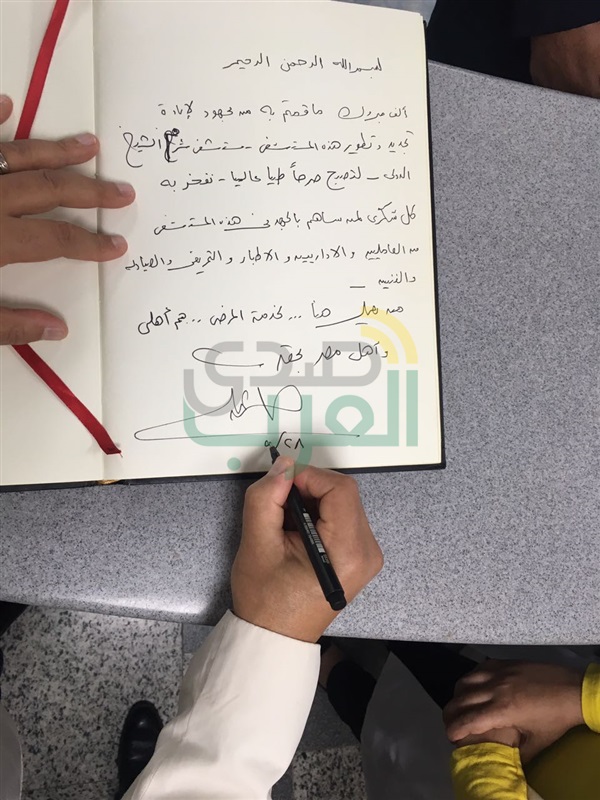 بسم الله الرحمن الرحيم
ألف مبروك ما قمتم به من جهود لإعادة
تجديد وتطوير هذه المستشفى - مستشفى شرم الشيخ
الدولى - لتصبح صرحاً طبياً عالمياً - نفخر به
كل شكرى لمن ساهم بالجهد فى هذه المستشفى
من العاملين والاداريين والاطباء والتمريض والصيادلة
والفنيين -
معه هنا ... لخدمة المرضى .. هم أهلى
وأهل مصر بحق
٢٨/
صدى العرب